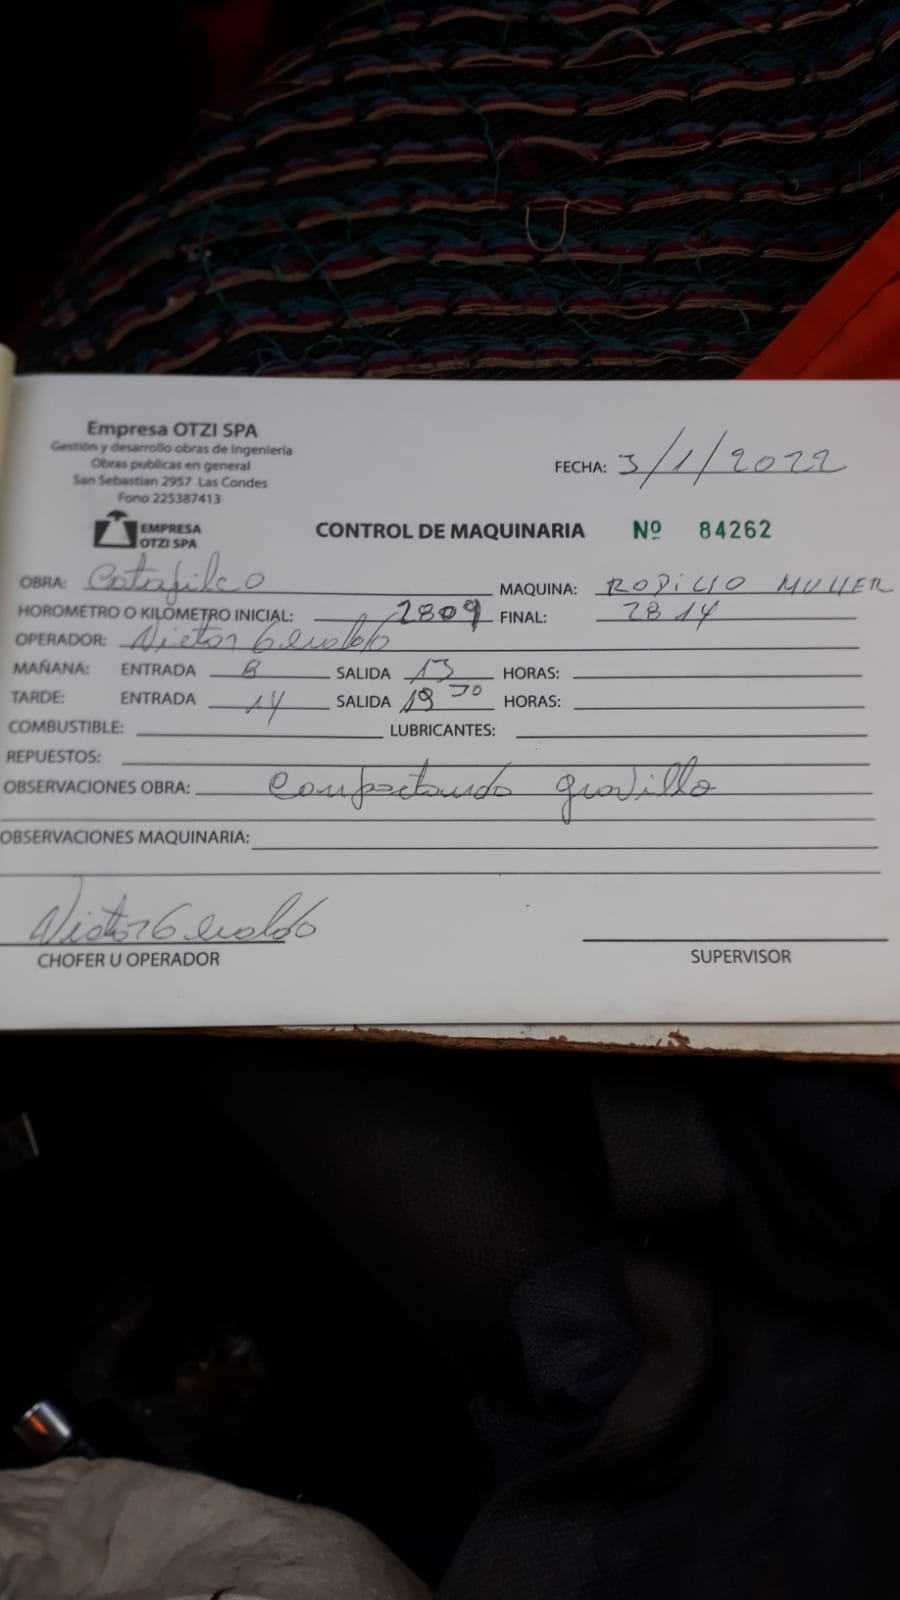 Empresa OTZI SPA
Gestión y desarrollo obras de Ingeniería
Obras publicas en general
San Sebastian 2957 Las Condes
Fono 225387413
EMPRESA
OTZI SPA
FECHA: 3/1/2022
CONTROL DE MAQUINARIA Nº 84262
OBRA: Catapilco MAQUINA: RODILLO MULLER
HOROMETRO O KILOMETRO INICIAL: 2809 FINAL: 2814
OPERADOR: Victor Geraldo
MAÑANA: ENTRADA 8 SALIDA 13 HORAS:
TARDE: ENTRADA 14 SALIDA 18 30 HORAS:
COMBUSTIBLE: LUBRICANTES:
REPUESTOS:
OBSERVACIONES OBRA: Compactando gravilla
OBSERVACIONES MAQUINARIA:
Victor Geraldo
CHOFER U OPERADOR SUPERVISOR